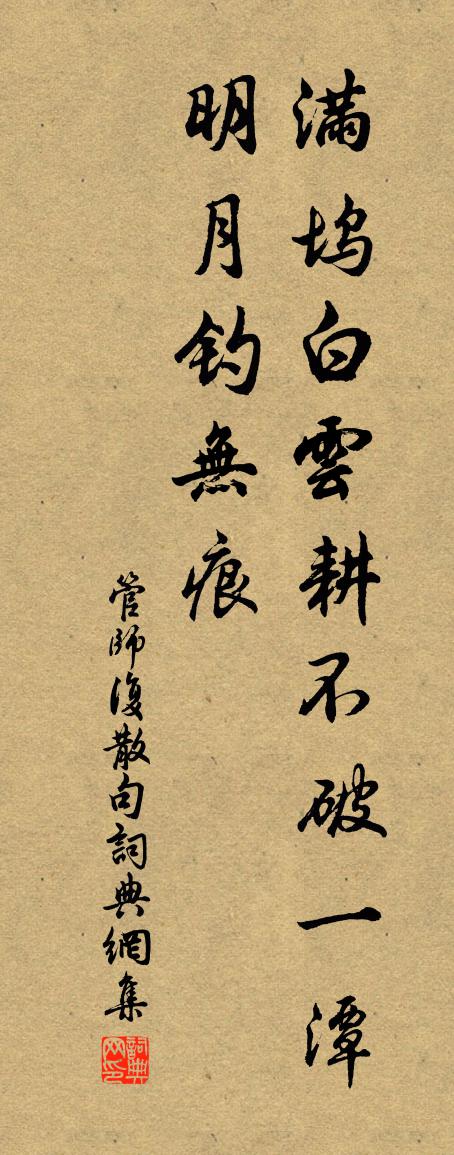 滿塢白雲耕不破一潭
明月釣無痕
管師復散句詞典網集
詞典网印